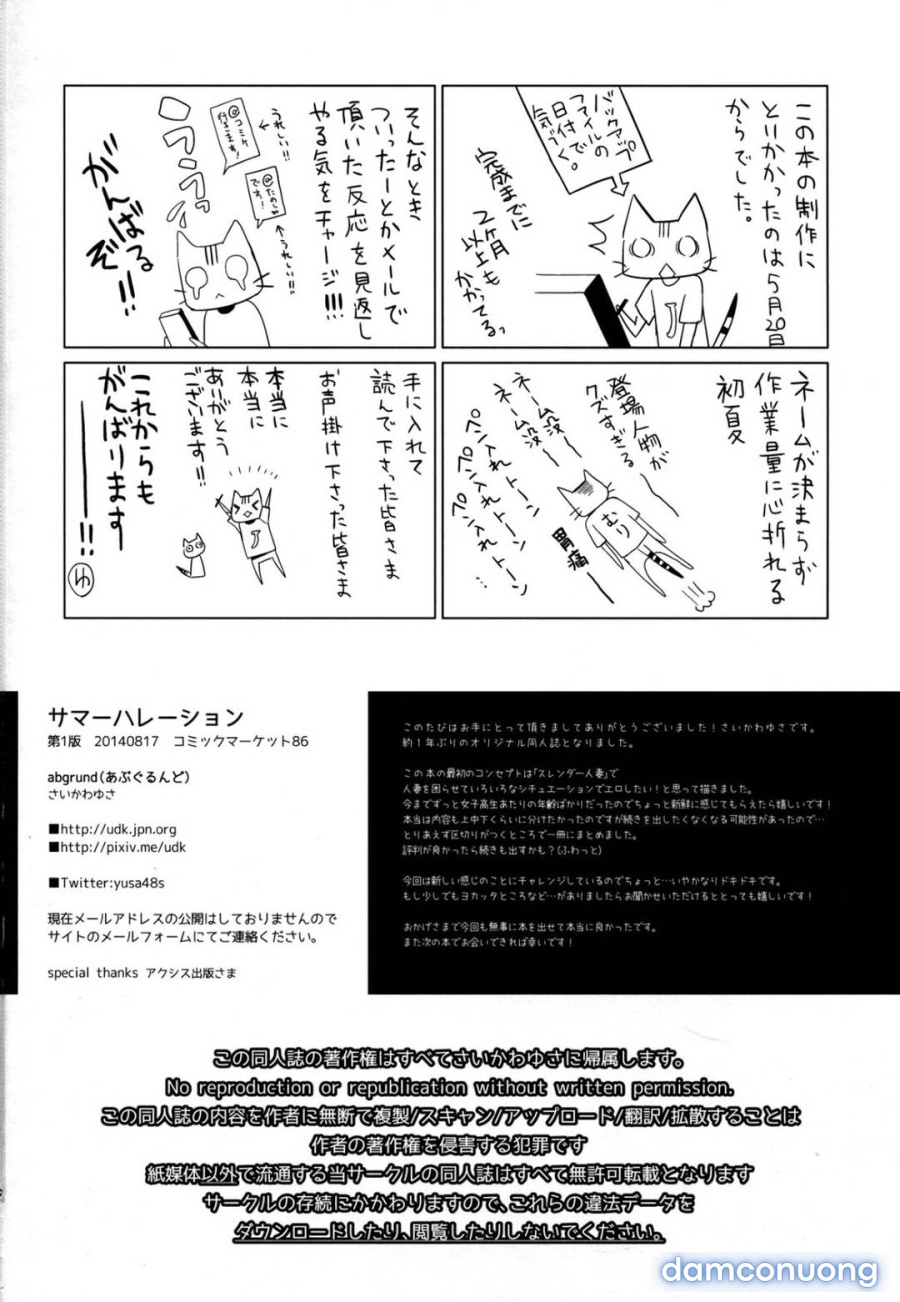 この本の制作に
とりかかったのは5月20日
からでした。
バックアップ
ファイルの
日付で
気づく。
完成までに
2ヶ月
以上も
かかってる。
そんなとき
ついったーとかメールで
頂いた反応を見返し
やる気をチャージ!!!
うれしい!!
@コミケ
行きます!
@たのしみ
です!
うれしい!!
がんばる
ぞ!!
ネームが決まらず
作業量に心折れる
初夏
登場人物が
クズすぎる
ネーム没ー
ネーム没ー
ペン入れトーン
ペン入れトーン
ペン入れトーン…
むり
胃痛ー
手に入れて
読んで下さった皆さま
お声掛け下さった皆さま
本当に
本当に
ありがとう
ございます!!
これからも
がんばります
――!!
ゆ
サマーハレーション
第1版 20140817 コミックマーケット86
abgrund(あぶぐるんど)
さいかわゆさ
■http://udk.jpn.org
■http://pixiv.me/udk
■Twitter:yusa48s
現在メールアドレスの公開はしておりませんので
サイトのメールフォームにてご連絡ください。
special thanks アクシス出版さま
このたびはお手にとって頂きましてありがとうございました!さいかわゆさです。
約1年ぶりのオリジナル同人誌となりました。
この本の最初のコンセプトは「スレンダー人妻」で
人妻を困らせていろいろなシチュエーションでエロしたい!と思って描きました。
今までずっと女子高生あたりの年齢ばかりだったのでちょっと新鮮に感じてもらえたら嬉しいです!
本当は内容も上中下くらいに分けたかったのですが続きを出したくなくなる可能性があったので…
とりあえず区切りがつくところで一冊にまとめました。
評判が良かったら続きも出すかも?(ふわっと)
今回は新しい感じのことにチャレンジしているのでちょっと…いやかなりドキドキです。
もし少しでもヨカッタところなど…がありましたらお聞かせいただけるととっても嬉しいです!
おかげさまで今回も無事に本を出せて本当に良かったです。
また次の本でお会いできれば幸いです!
この同人誌の著作権はすべてさいかわゆさに帰属します。
No reproduction or republication without written permission.
この同人誌の内容を作者に無断で複製/スキャン/アップロード/翻訳/拡散することは
作者の著作権を侵害する犯罪です
紙媒体以外で流通する当サークルの同人誌はすべて無許可転載となります
サークルの存続にかかわりますので、これらの違法データを
ダウンロードしたり、閲覧したりしないでください。
damconuong